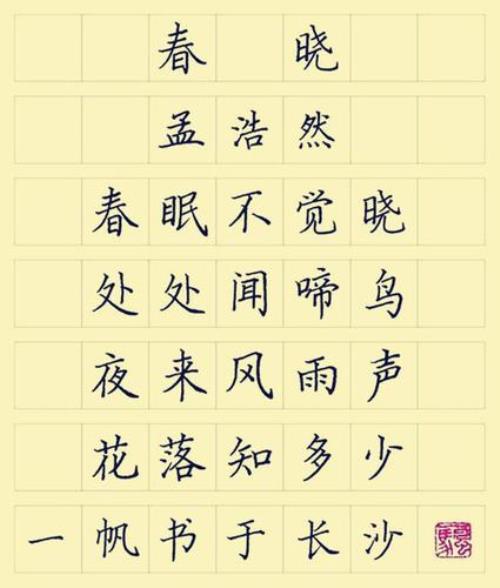 春晓
孟浩然
春眠不觉晓
处处闻啼鸟
夜来风雨声
花落知多少
一帆书于长沙